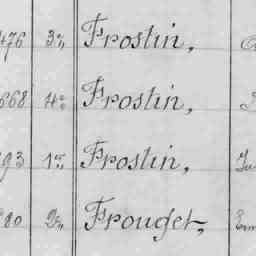 476 3e, Frostin,
668 4e, Frostin,
93 1re, Frostin,
80 2e, Frouget,